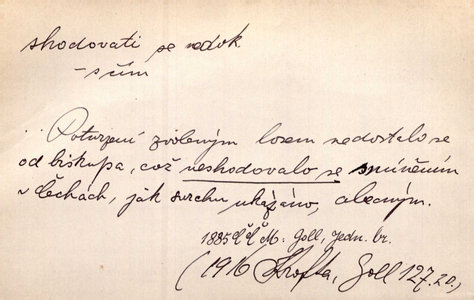 shodovati se nedok
– s čím
Potvrzení zvoleným losem nedostalo se
od biskupa, což neshodovalo se s míněním
v Čechách, jak svrchu ukázáno, obecným.
1885 ČČM. Goll, Jedn. br.
(1916 Krofta, Goll 127.20.)